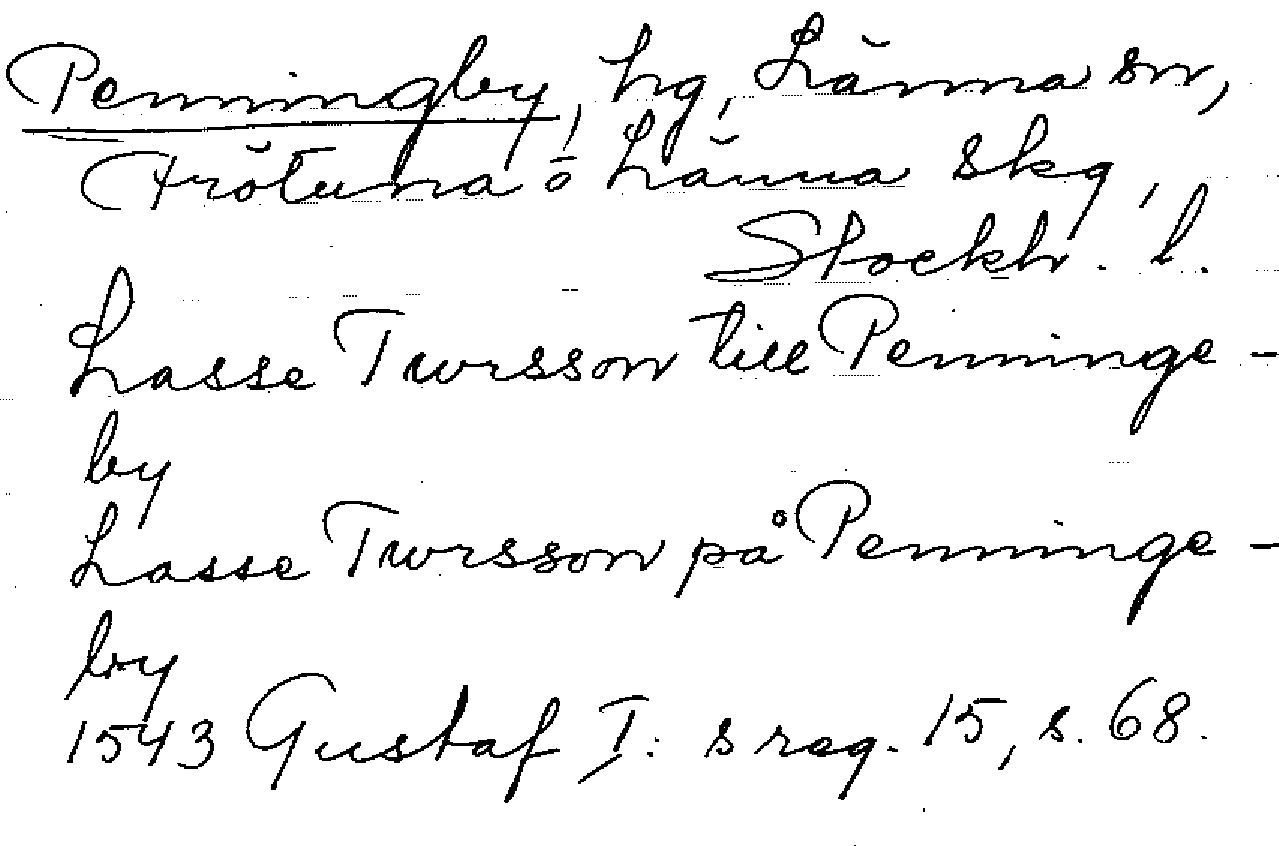 Penningby, hg, Länna sn,
Frötuna o Länna skg,
Stockh. l.
Lasse Twrsson till Penninge-
by
Lasse Twrsson på Penninge-
by
1543 Gustaf I: s reg. 15, s. 68.